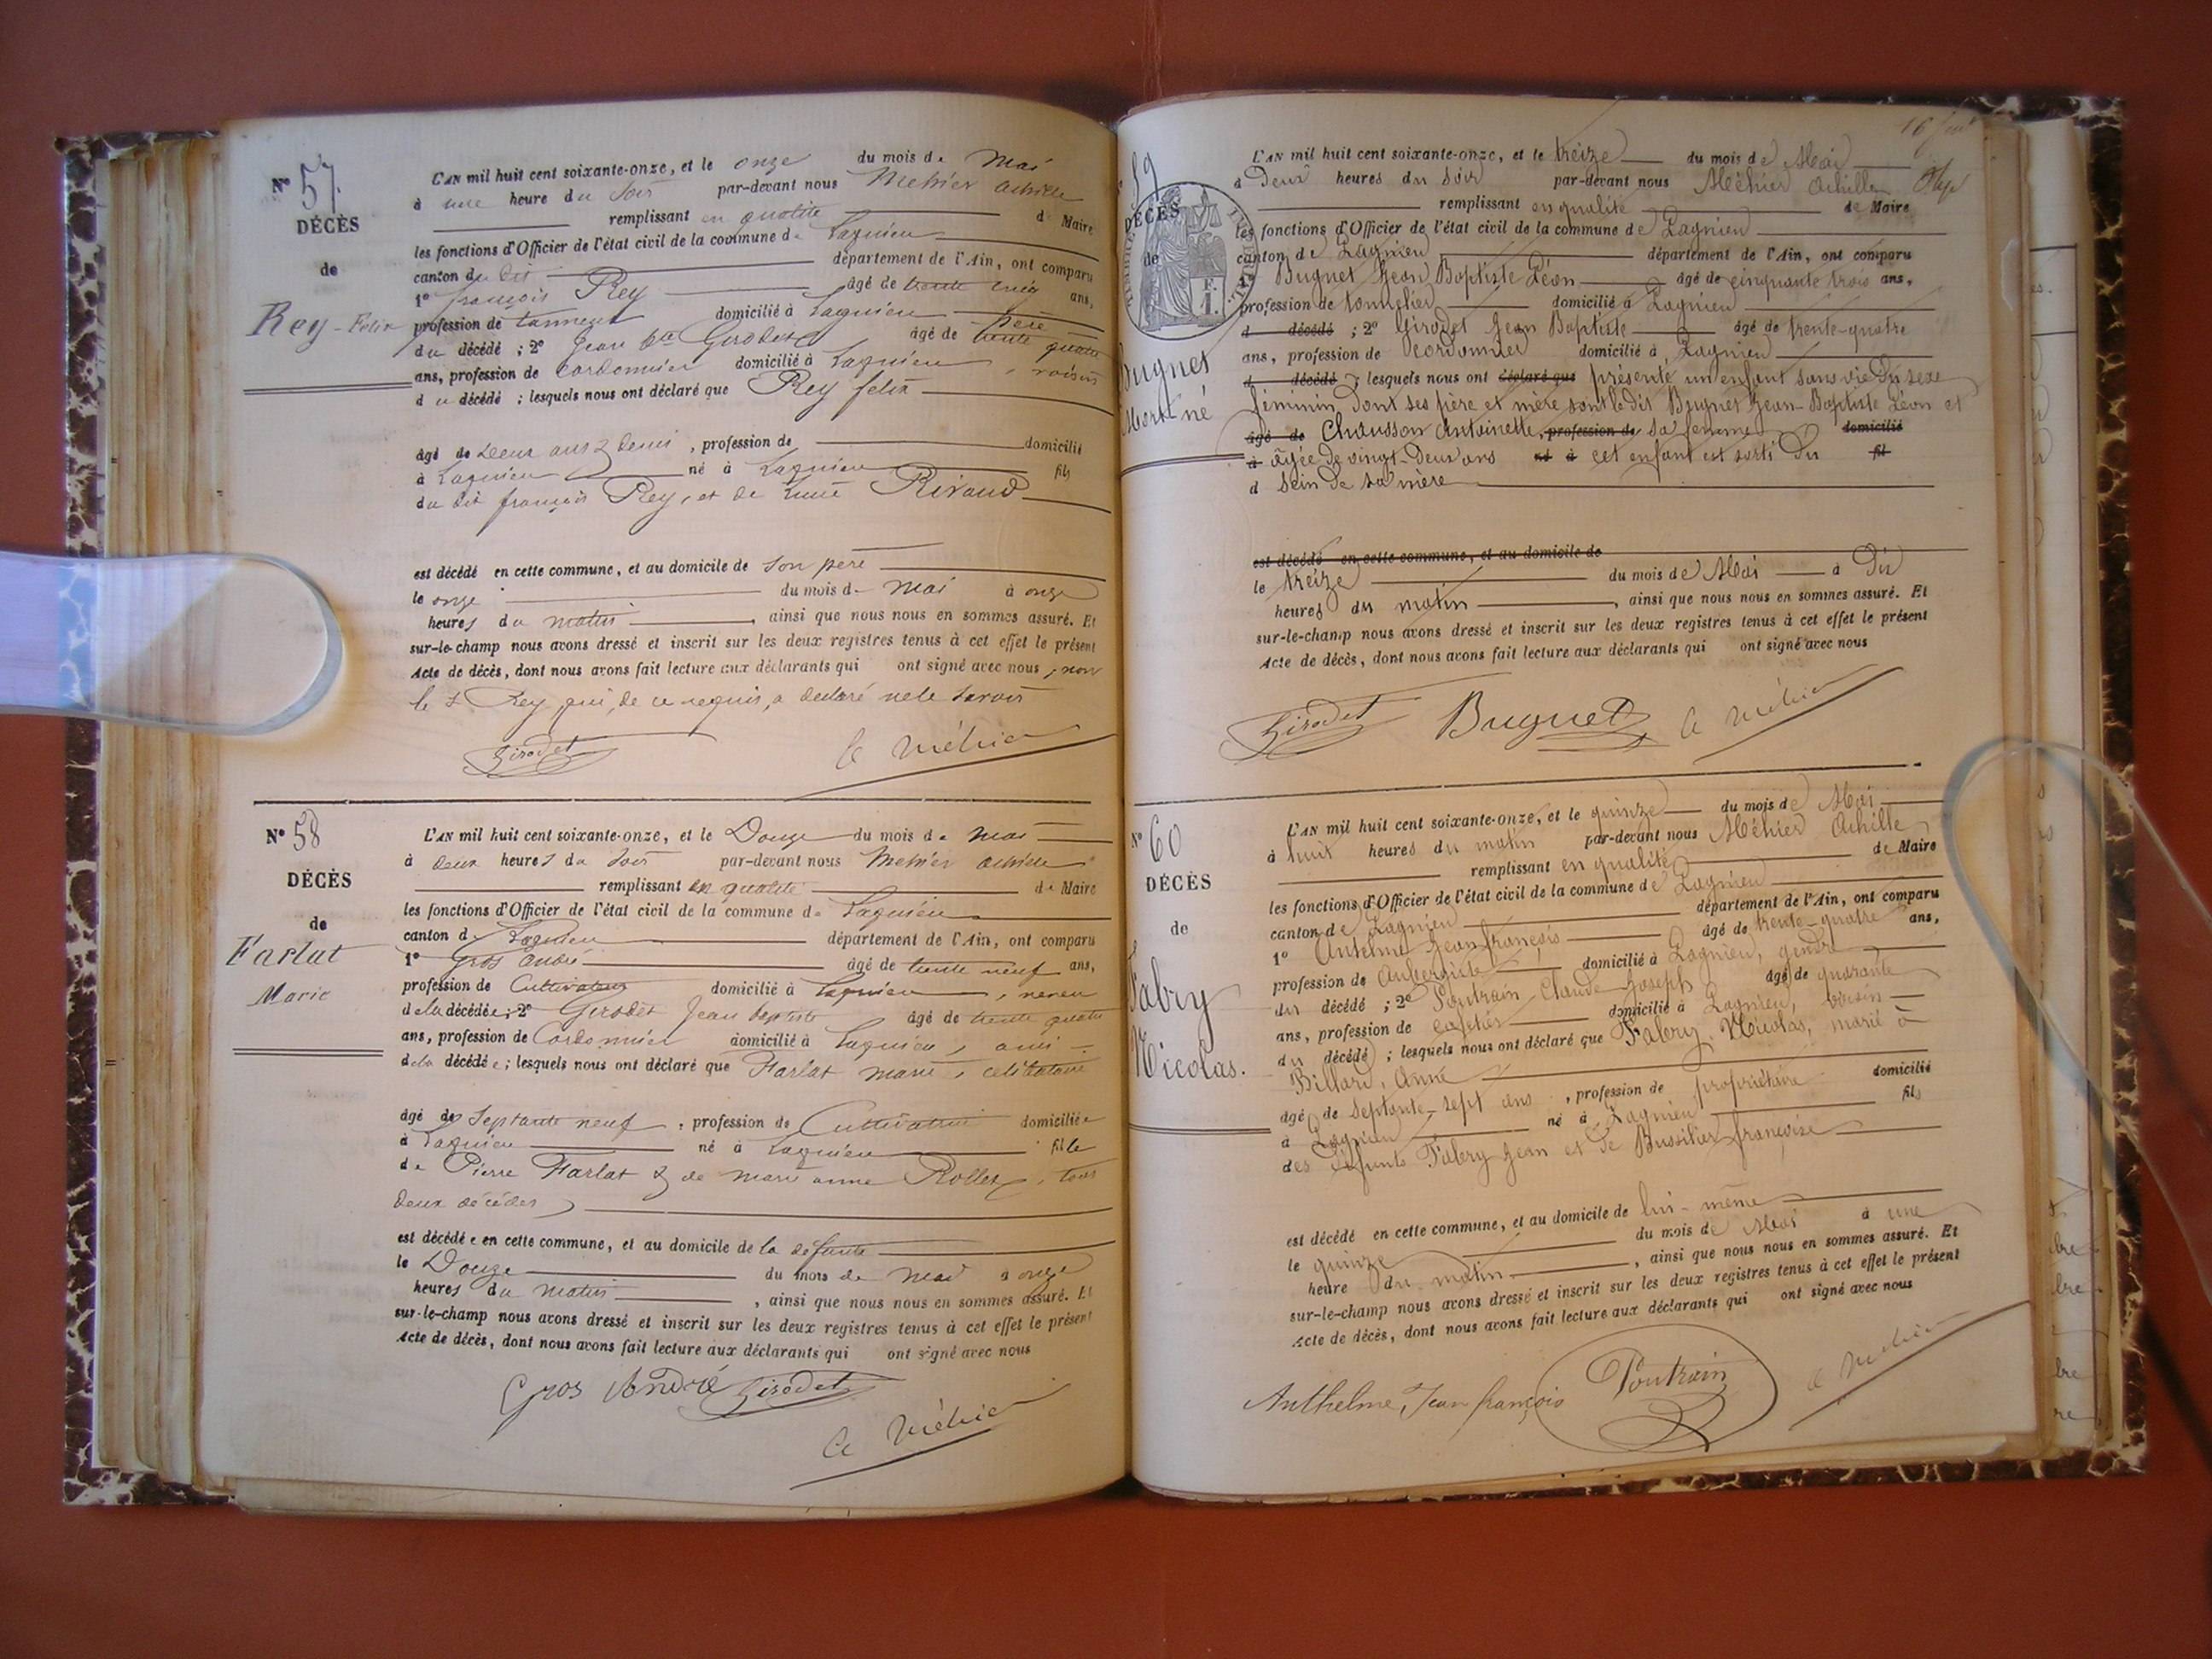 N° 57.
DÉCÈS
de
Rey - Felix
L'AN mil huit cent soixante-onze, et le onze du mois de Mai
à une heure du Soir par-devant nous Mehier achille
remplissant en qualité de Maire
les fonctions d'Officier de l'état civil de la commune de Lagnieu
canton du dit département de l'Ain, ont comparu
1° françois Rey âgé de trente cinq ans,
profession de tanneur domicilié à Lagnieu père
du décédé ; 2° Jean Bte Girodet âgé de trente quatre
ans, profession de Cordonnier domicilié à Lagnieu, voisin
du décédé ; lesquels nous ont déclaré que Rey felix
âgé de Deux ans & demi, profession de domicilié
à Lagnieu né à Lagnieu fils
du dit françois Rey, et de Rivaud
est décédé en cette commune, et au domicile de son père
le onze du mois de Mai à onze
heures du matin, ainsi que nous nous en sommes assuré. Et
sur-le-champ nous avons dressé et inscrit sur les deux registres tenus à cet effet le présent
Acte de décès, dont nous avons fait lecture aux déclarants qui ont signé avec nous, non
le s Rey qui, de ce requis, a déclaré ne le savoir
Girodet A Méhier
N° 58
DÉCÈS
de
Farlat
Marie
L'AN mil huit cent soixante-onze, et le Douze du mois de Mai
à deux heures du Soir par-devant nous Mehier achille
remplissant en qualité de Maire
les fonctions d'Officier de l'état civil de la commune de Lagnieu
canton de Lagnieu département de l'Ain, ont comparu
1° Gros André âgé de trente neuf ans,
profession de Cultivateur domicilié à Lagnieu, neveu
de la décédée ; 2° Girodet Jean baptiste âgé de trente quatre
ans, profession de Cordonnier domicilié à Lagnieu, ami
de la décédée ; lesquels nous ont déclaré que Farlat marie, célibataire
âgé de Septante neuf, profession de Cultivatrice domiciliée
à Lagnieu né à Lagnieu fille
de Pierre Farlat & de marie anne Rollet, tous
deux décédés
est décédée en cette commune, et au domicile de la défunte
le Douze du mois de Mai à onze
heures du matin, ainsi que nous nous en sommes assuré. Et
sur-le-champ nous avons dressé et inscrit sur les deux registres tenus à cet effet le présent
Acte de décès, dont nous avons fait lecture aux déclarants qui ont signé avec nous
Gros André Girodet
A Méhier
59
DÉCÈS
de
Bugnet
Mort-né
L'AN mil huit cent soixante-onze, et le treize du mois de Mai
à Deux heures du soir par-devant nous Méhier Achille
remplissant en qualité de Maire
les fonctions d'Officier de l'état civil de la commune de Lagnieu
canton de Lagnieu département de l'Ain, ont comparu
1° Bugnet Jean Baptiste Léon âgé de cinquante trois ans,
profession de tonnelier domicilié à Lagnieu
d décédé ; 2° Girodet Jean Baptiste âgé de trente-quatre
ans, profession de Cordonnier domicilié à Lagnieu
d décédé ; lesquels nous ont déclaré que présenté un enfant sans vie Du sexe
féminin Dont ses père et mère sont le dit Bugnet Jean-Baptiste Léon et
âgé de Chausson Antoinette, profession de sa femme domicilié
à âgée de vingt-Deux ans né à cet enfant est sorti Du fil
d sein De sa mère
est décédé en cette commune, et au domicile de
le treize du mois de Mai à Dix
heures du matin, ainsi que nous nous en sommes assuré. Et
sur-le-champ nous avons dressé et inscrit sur les deux registres tenus à cet effet le présent
Acte de décès, dont nous avons fait lecture aux déclarants qui ont signé avec nous
Girodet Bugnet A Méhier
N° 60
DÉCÈS
de
Fabry
Nicolas.
L'AN mil huit cent soixante-onze, et le quinze du mois de Mai
à huit heures du matin par-devant nous Méhier Achille
remplissant en qualité de Maire
les fonctions d'Officier de l'état civil de la commune de Lagnieu
canton de Lagnieu département de l'Ain, ont comparu
1° Antelme Jean françois âgé de trente-quatre ans,
profession de Aubergiste domicilié à Lagnieu, gendre
du décédé ; 2° Poutrain Claude Joseph âgé de quarante
ans, profession de cafetier domicilié à Lagnieu, voisin
du décédé ; lesquels nous ont déclaré que Fabry, Nicolas, marié à
Billard, Anne
âgé de septante-sept ans, profession de propriétaire domicilié
à Lagnieu né à Lagnieu fils
des défunts Fabry Jean et de Bussilier françoise
est décédé en cette commune, et au domicile de lui-même
le quinze du mois de Mai à une
heure du matin, ainsi que nous nous en sommes assuré. Et
sur-le-champ nous avons dressé et inscrit sur les deux registres tenus à cet effet le présent
Acte de décès, dont nous avons fait lecture aux déclarants qui ont signé avec nous
Anthelme, Jean françois Poutrain A Méhier